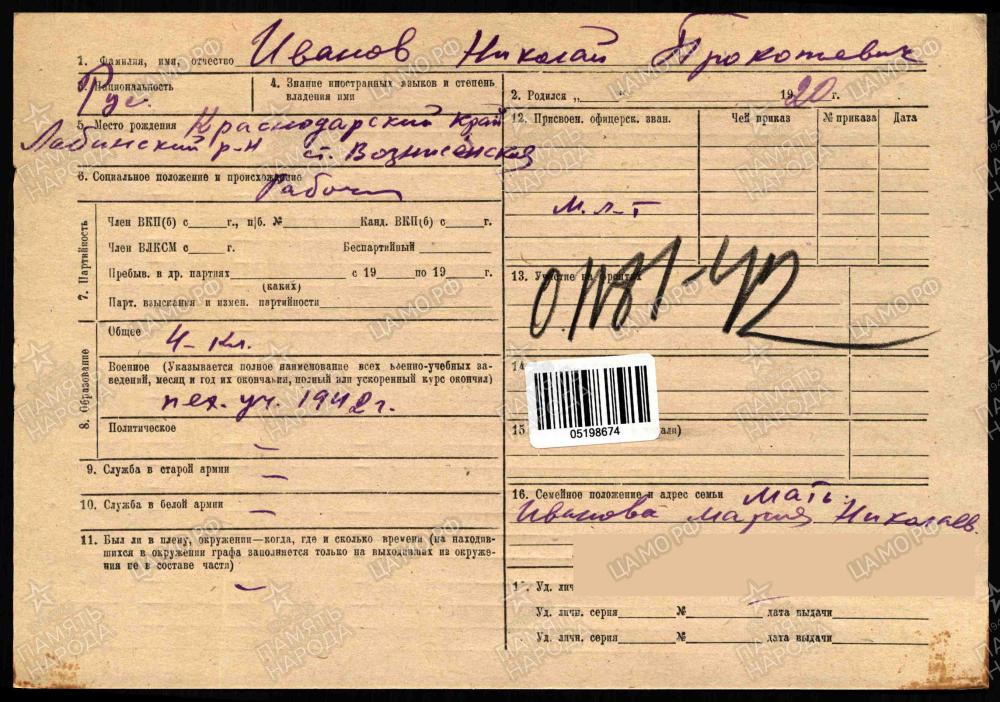 1. Фамилия, имя, отчество Иванов Николай Прокопевич
3. Национальность Рус.
4. Знание иностранных языков и степень
владения ими
2. Родился „ " 1920 г.
5. Место рождения Краснодарский край
Лабинский р-н ст. Вознисенская
6. Социальное положение и происхождение
Рабочи
7. Партийность
Член ВКП(б) с г., п/б. № Канд. ВКП(б) с г.
Член ВЛКСМ с г. Беспартийный
Пребыв. в др. партиях с 19 по 19 г.
(каких)
Парт. взыскания и измен. партийности
8. Образование
Общее
4-кл.
Военное (Указывается полное наименование всех военно-учебных за-
ведений, месяц и год их окончания, полный или ускоренный курс окончил)
пех. уч. 1942 г.
Политическое
—
9. Служба в старой армии —
10. Служба в белой армии —
11. Был ли в плену, окружении—когда, где и сколько времени (на находив-
шихся в окружении графа заполняется только на выходивших из окруже-
ния не в составе части)
—
12. Присвоен. офицерск. зван. Чей приказ № приказа Дата
м.л-т
13. Участие на фронтах
0.1181-42
14
05198674
15 али)
16. Семейное положение и адрес семьи Мать.
Иванова Мария Николаев.
Уд. лич
Уд. личн. серия № дата выдачи
Уд. личн. серия № дата выдачи
ПАМЯТЬ НАРОДА
ЦАМО.РФ